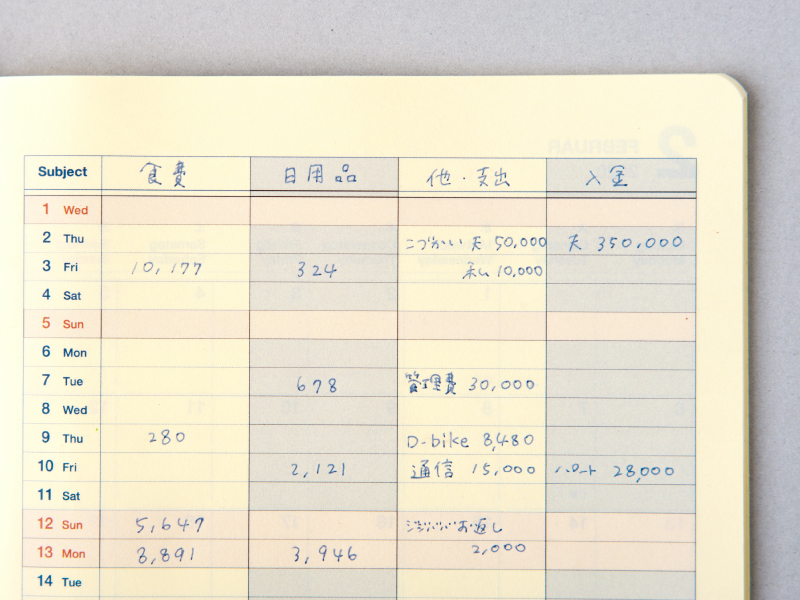 Subject 食費 日用品 他・支出 入金
1 Wed
2 Thu こづかい 夫 50,000 夫 350,000
3 Fri 10,177 324 私 10,000
4 Sat
5 Sun
6 Mon
7 Tue 678 管理費 30,000
8 Wed
9 Thu 280 D-bike 8,480
10 Fri 2,121 通信 15,000 パート 28,000
11 Sat
12 Sun 5,647 お返し
13 Mon 8,891 3,946 2,000
14 Tue